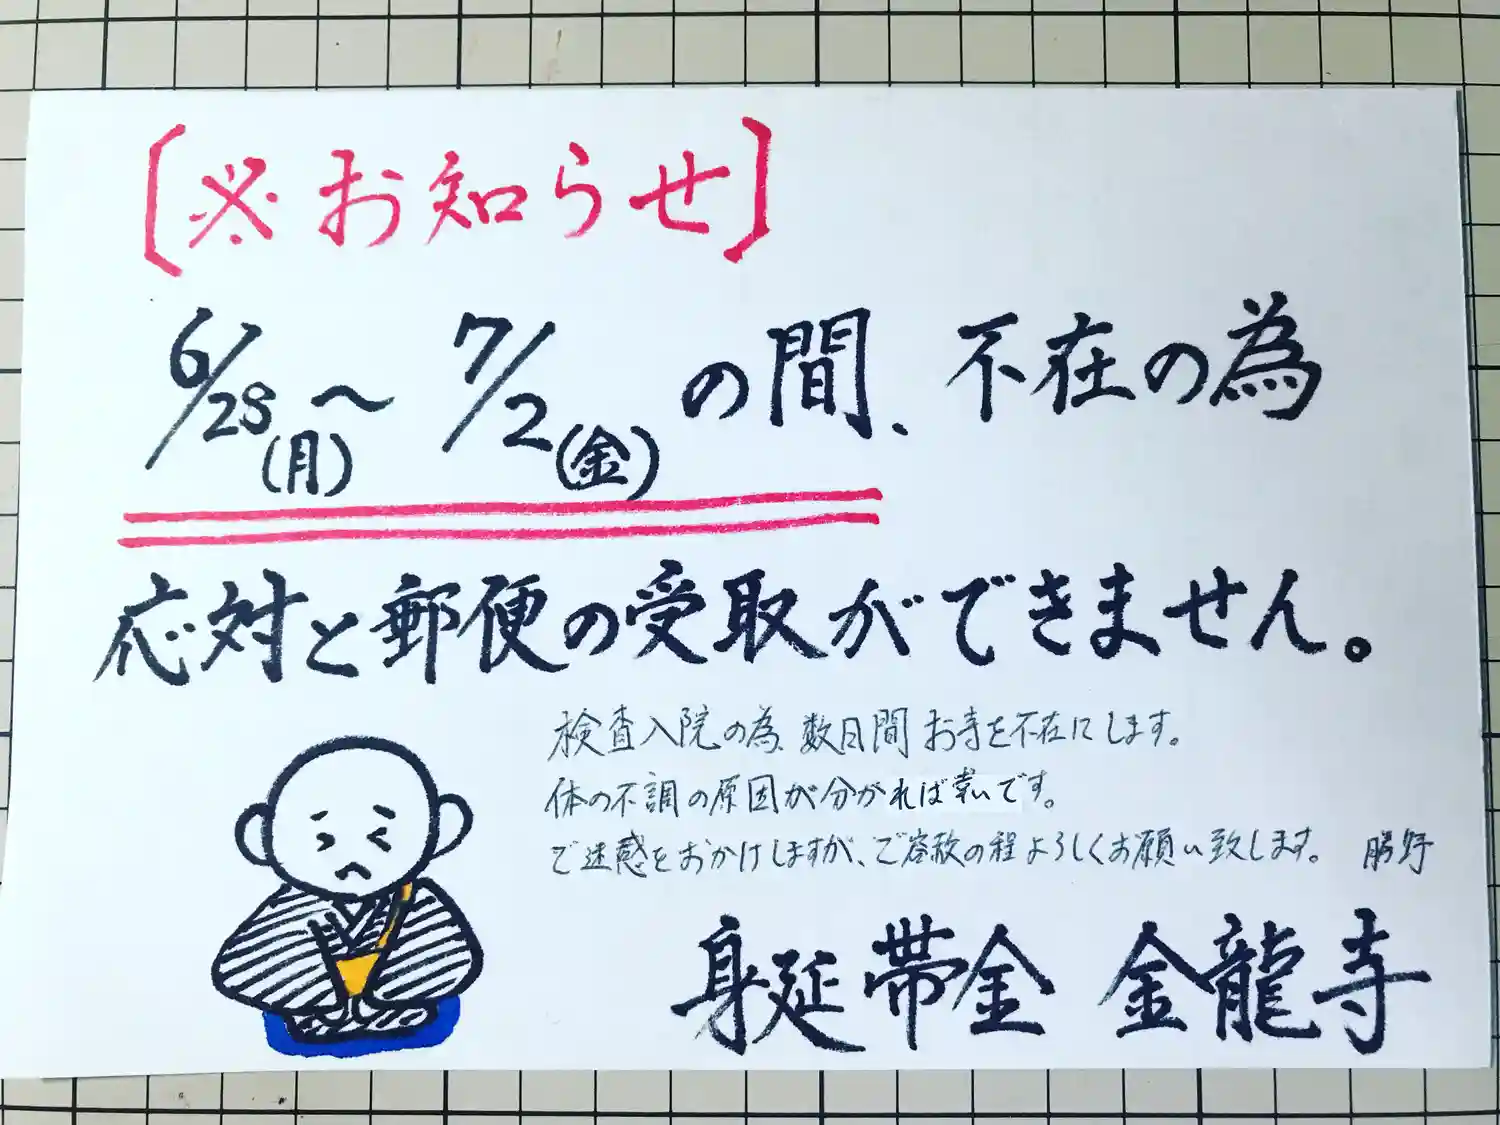 [※お知らせ]
6/28(月)〜7/2(金)の間、不在の為
応対と郵便の受取ができません。
検査入院の為、数日間お寺を不在にします。
体の不調の原因が分かれば幸いです。
ご迷惑をおかけしますが、ご容赦の程よろしくお願い致します。 勝野
身延帯金 金龍寺